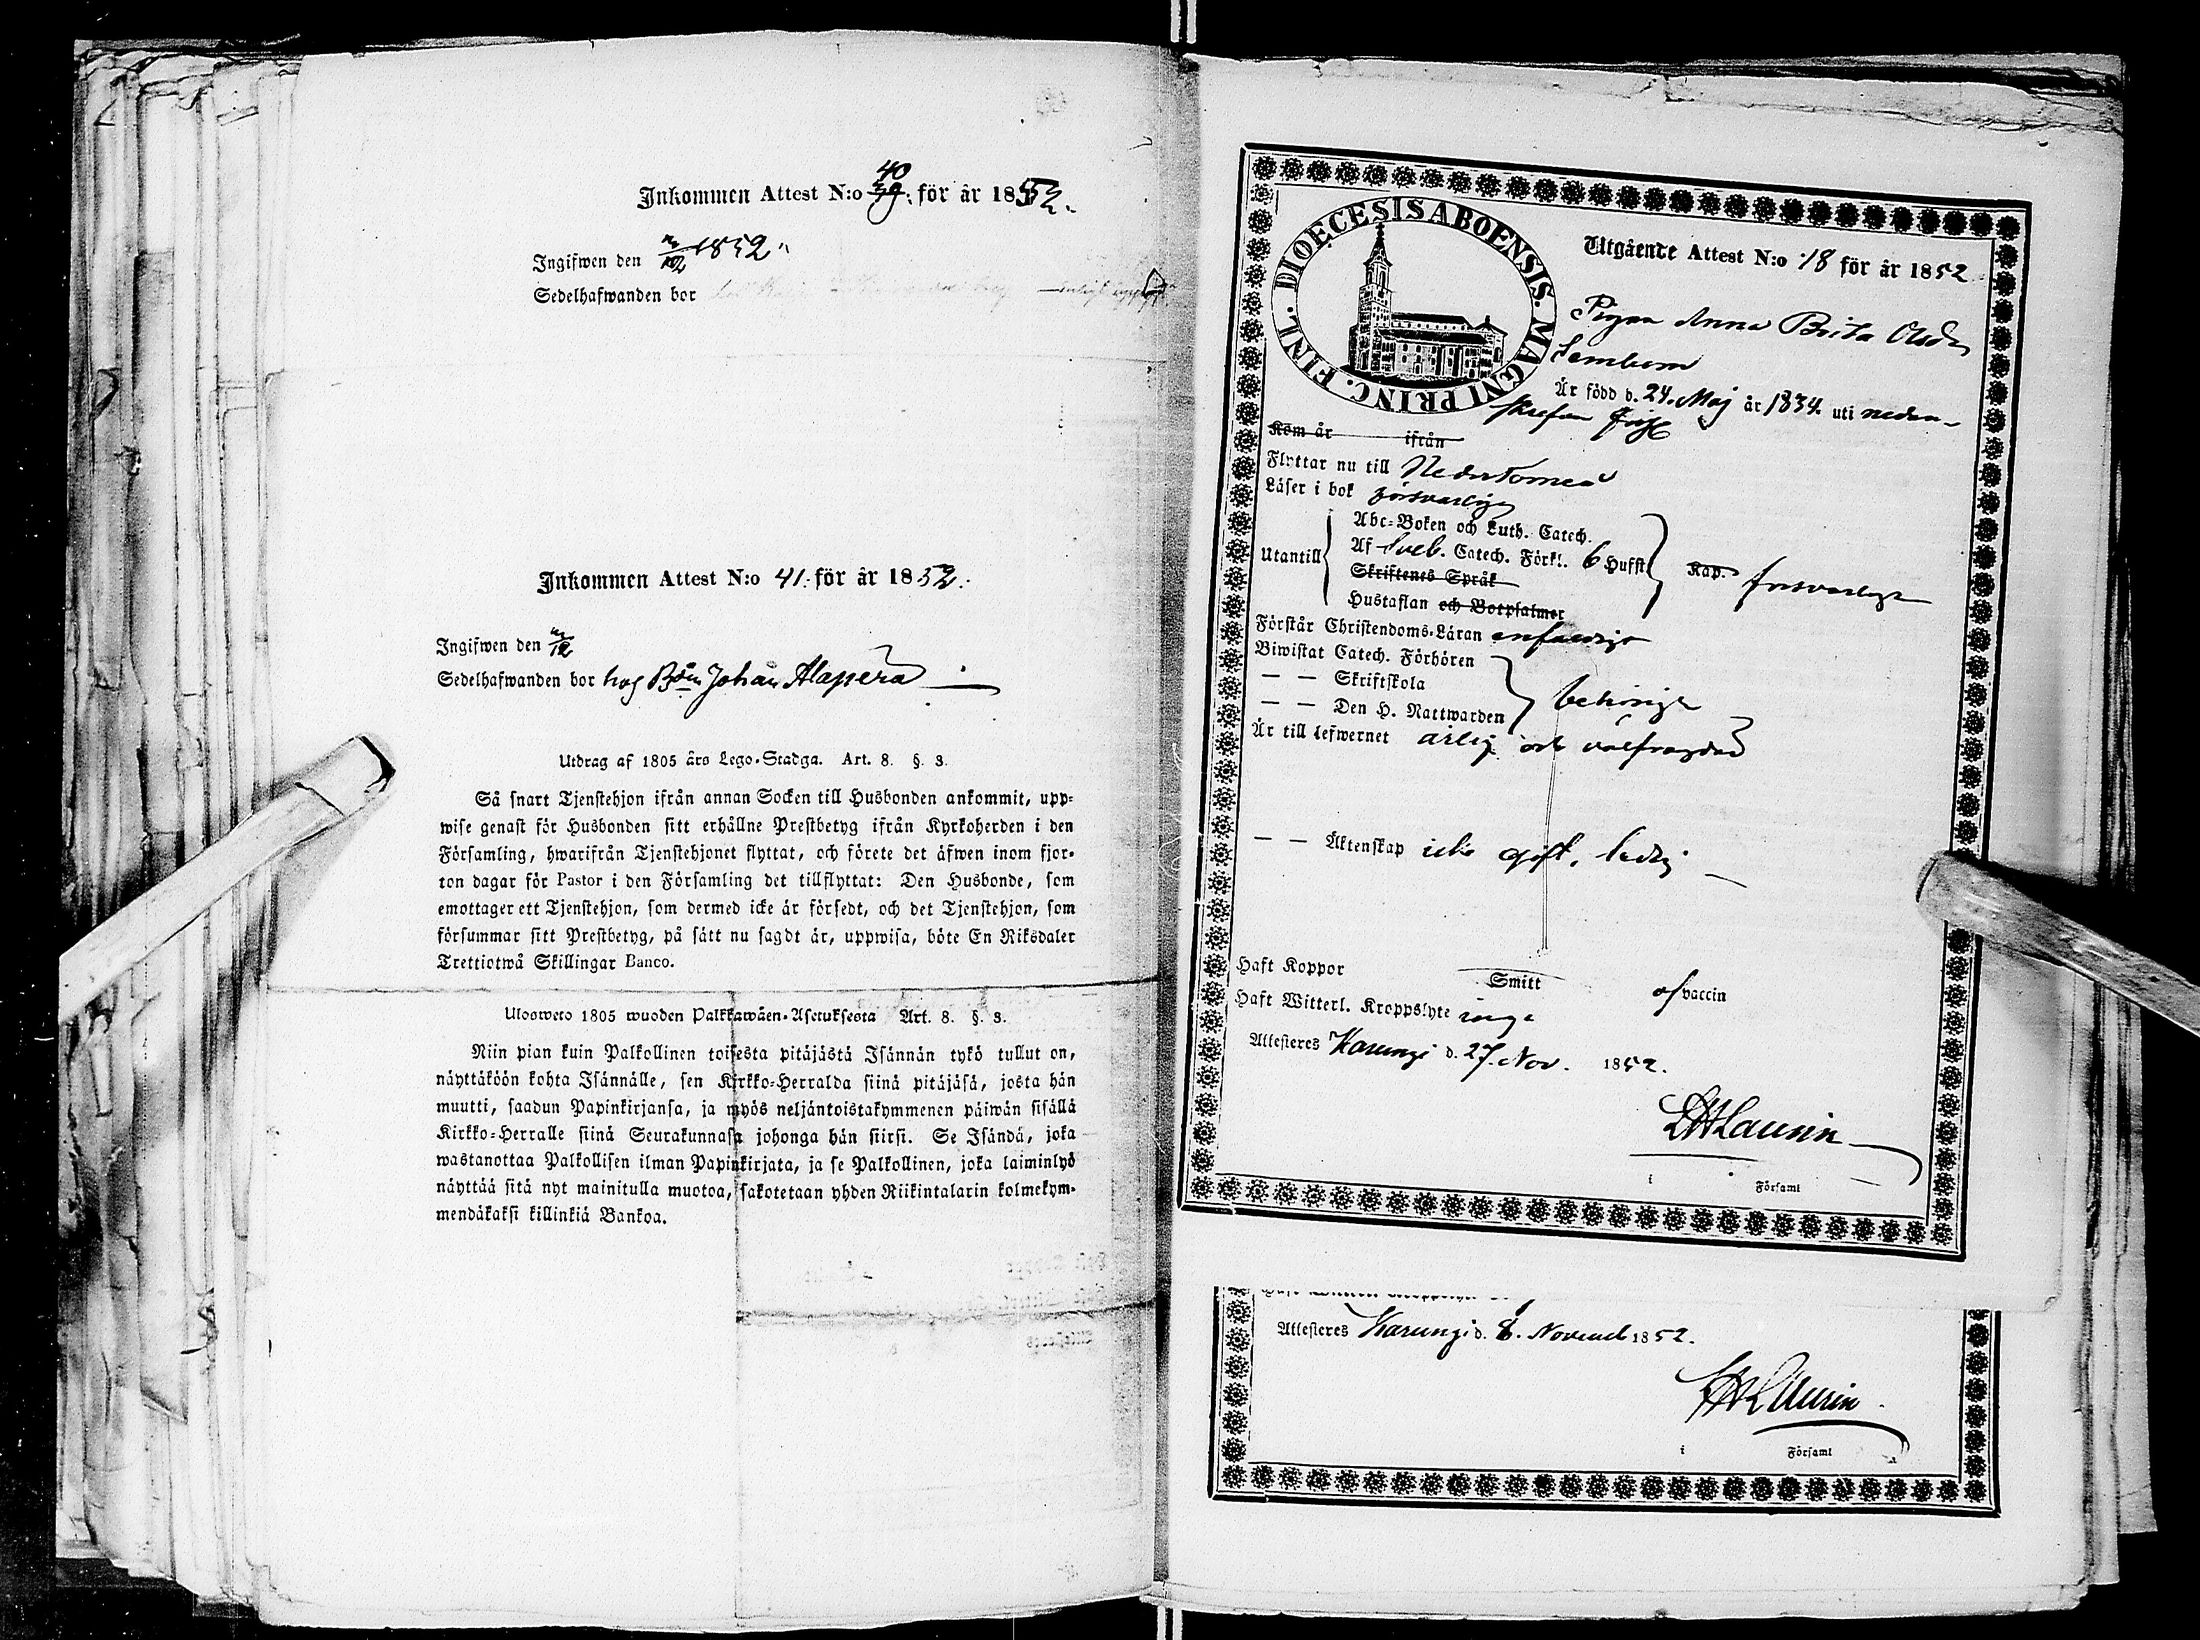 Inkommen Attest N:o 39. 40 för år 1852.
Ingifwen den 1852
Sedelhafwanden bor
Inkommen Attest N:o 41. för år 1852.
Ingifwen den
Sedelhafwanden bor hos Bon Johan Alaperä
Utdrag af 1805 års Lego-Stadga. Art. 8. §. 3.
Så snart Tjenstehjon ifrån annan Socken till Husbonden ankommit, upp-
wise genast för Husbonden sitt erhållne Prestbetyg ifrån Kyrkoherden i den
Församling, hwarifrån Tjenstehjonet flyttat, och förete det äfwen inom fjor-
ton dagar för Pastor i den Församling det tillflyttat: Den Husbonde, som
emottager ett Tjenstehjon, som dermed icke är försedt, och det Tjenstehjon, som
försummar sitt Prestbetyg, på sätt nu sagdt är, uppwisa, böte En Riksdaler
Trettiotwå Skillingar Banco.
Ulosweto 1805 wuoden Palkkawäen-Asetuksesta Art. 8. §. 3.
Niin pian kuin Palkollinen toisesta pitäjästä Isännän tykö tullut on,
näyttäköön kohta Isännälle, sen Kirkko-Herralda siinä pitäjäsä, josta hän
muutti, saadun Papinkirjansa, ja myös neljäntoistakymmenen päiwän sisällä
Kirkko-Herralle siinä Seurakunnasa johonga hän siirsi. Se Isändä, joka
wastanottaa Palkollisen ilman Papinkirjata, ja se Palkollinen, joka laiminlyö
näyttää sitä nyt mainitulla muotoa, sakotetaan yhden Riikintalarin kolmekym-
mendäkaksi killinkiä Bankoa.
DIOECESIS ABOENSIS. MAGNI PRINC. FINL.
Utgående Attest N:o 18 för år 1852
Pigan Anna Brita Olsdr
Lembom
Är född d. 24. Maj år 1834. uti nedan-
skrefne
Kom år ifrån
Flyttar nu till NederTorneå
Läser i bok försvarligt
Abc-Boken och Luth. Catech.
Utantill Af Sveb. Catech. Förkl. 6 Hufst. Kap. försvarligt
Skriftenes Språk
Hustaflan och Botpsalmer
Förstår Christendoms-Läran enfaldigt
Biwistat Catech. Förhören
— — Skriftskola behörigt
— — Den H. Nattwarden
Är till lefwernet ärlig och välfrägdad
— — Äktenskap icke gift, ledig
Haft Koppor Smitt af vaccin
Haft Witterl. Kroppslyte inga
Attesteres Karungi d. 27. Nov. 1852.
LHLaurin
i Församl
Attesteres Karungi d. 8. Novemb 1852.
LHLaurin
i Församl